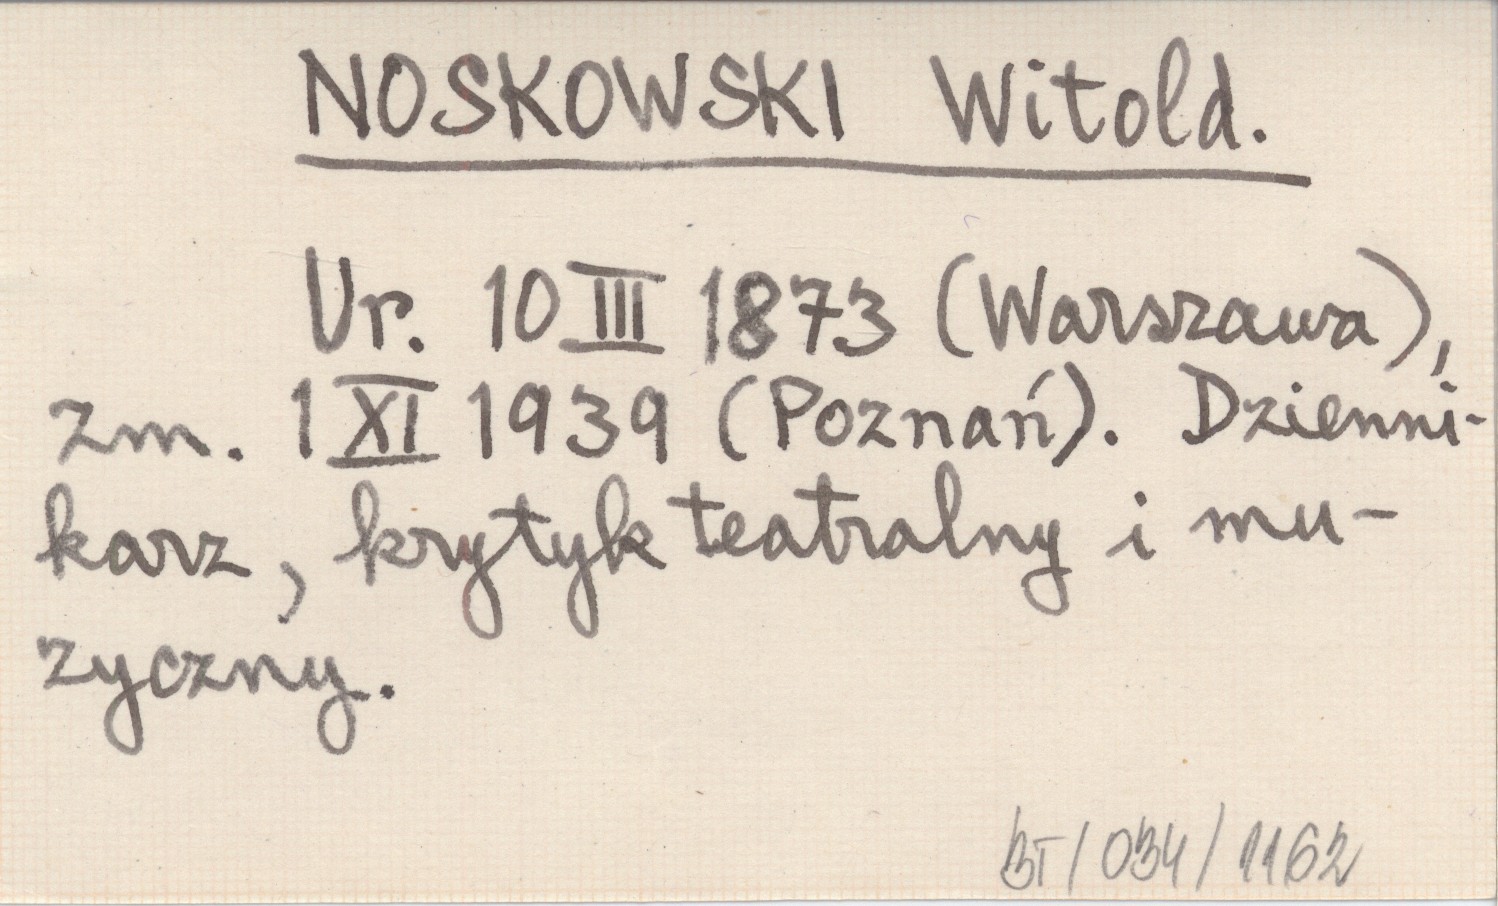 NOSKOWSKI Witold.
Ur. 10 III 1873 (Warszawa),
zm. 1 XI 1939 (Poznań). Dzienni-
karz, krytyk teatralny i mu-
zyczny.
BT/034/1162